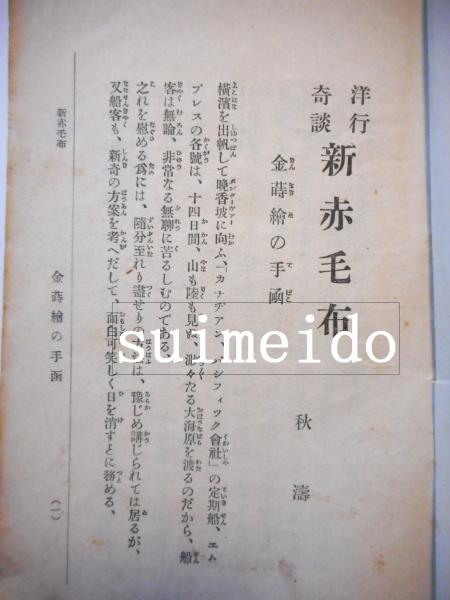 洋行
奇談
新赤毛布
秋濤
金蒔繪の手凾
横濱を出帆して晩香坡に向ふ、「カナデアン、パシフィック會社」の定期船、エム
プレスの各號は、十四日間、山も陸も見ぬ、渺々たる大海原を渡るのだから、船
客は無論、非常なる無聊に苦るしむのである。
之れを慰める爲には、隨分至れり盡せりの方法は、豫じめ講じられては居るが、
又船客も、新奇の方案を考へだして、面白可笑しく日を消すことに務める、
新赤毛布
金蒔繪の手凾
(一)
suimeido